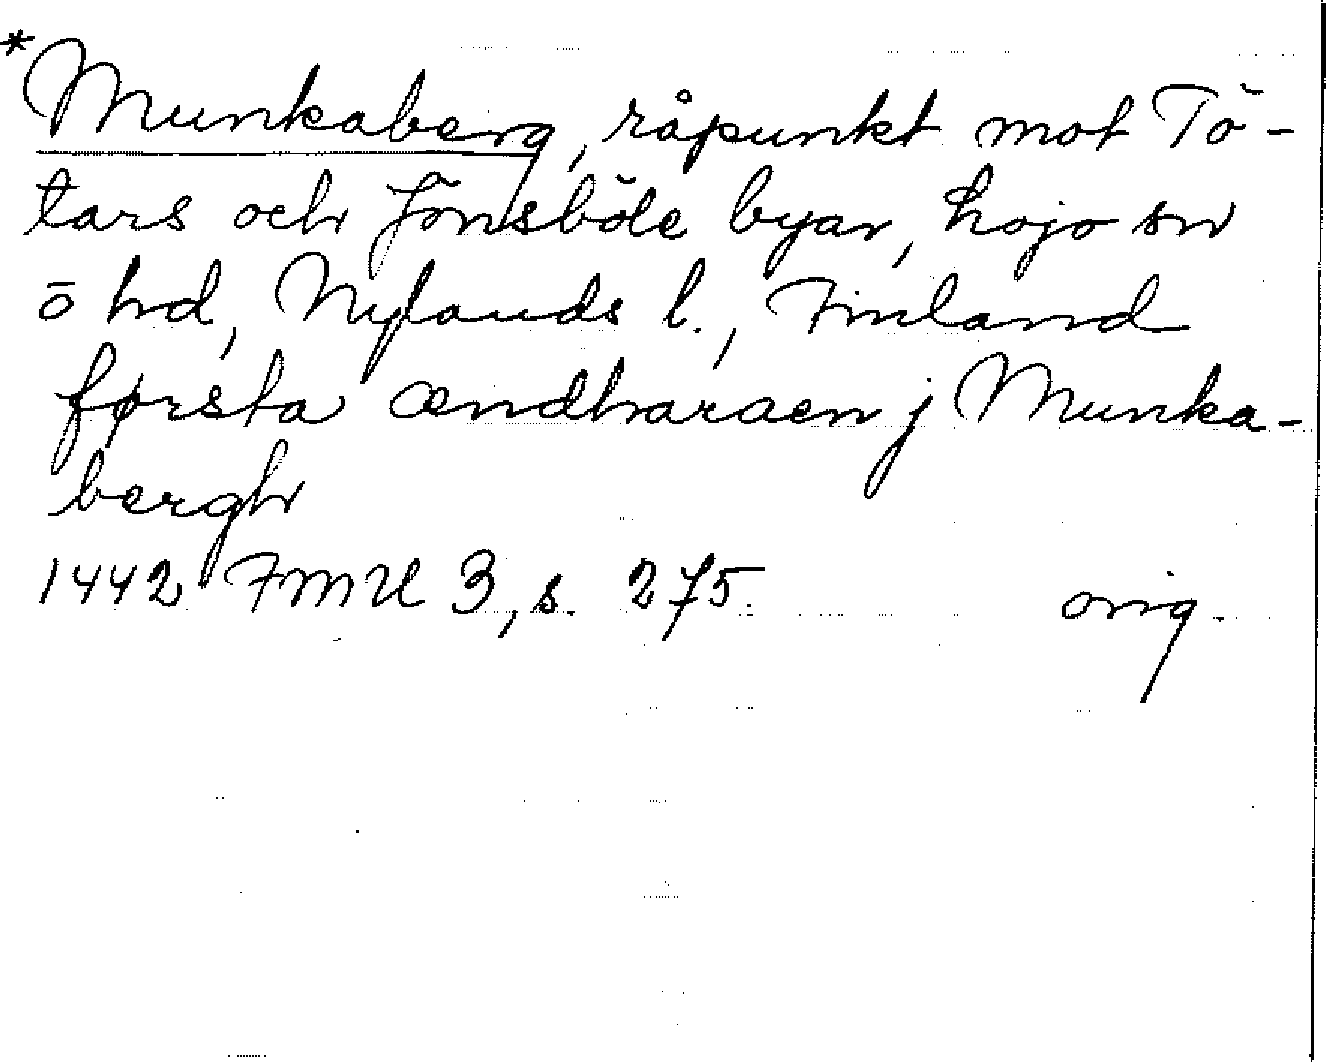 *Munkaberg, råpunkt mot Tö-
tars och Jönsböle byar, Lojo sn
ö hd, Nylands l., Finland
førsta ændharaen j Munka-
bergh
1442 FMU 3, s. 275. orig.